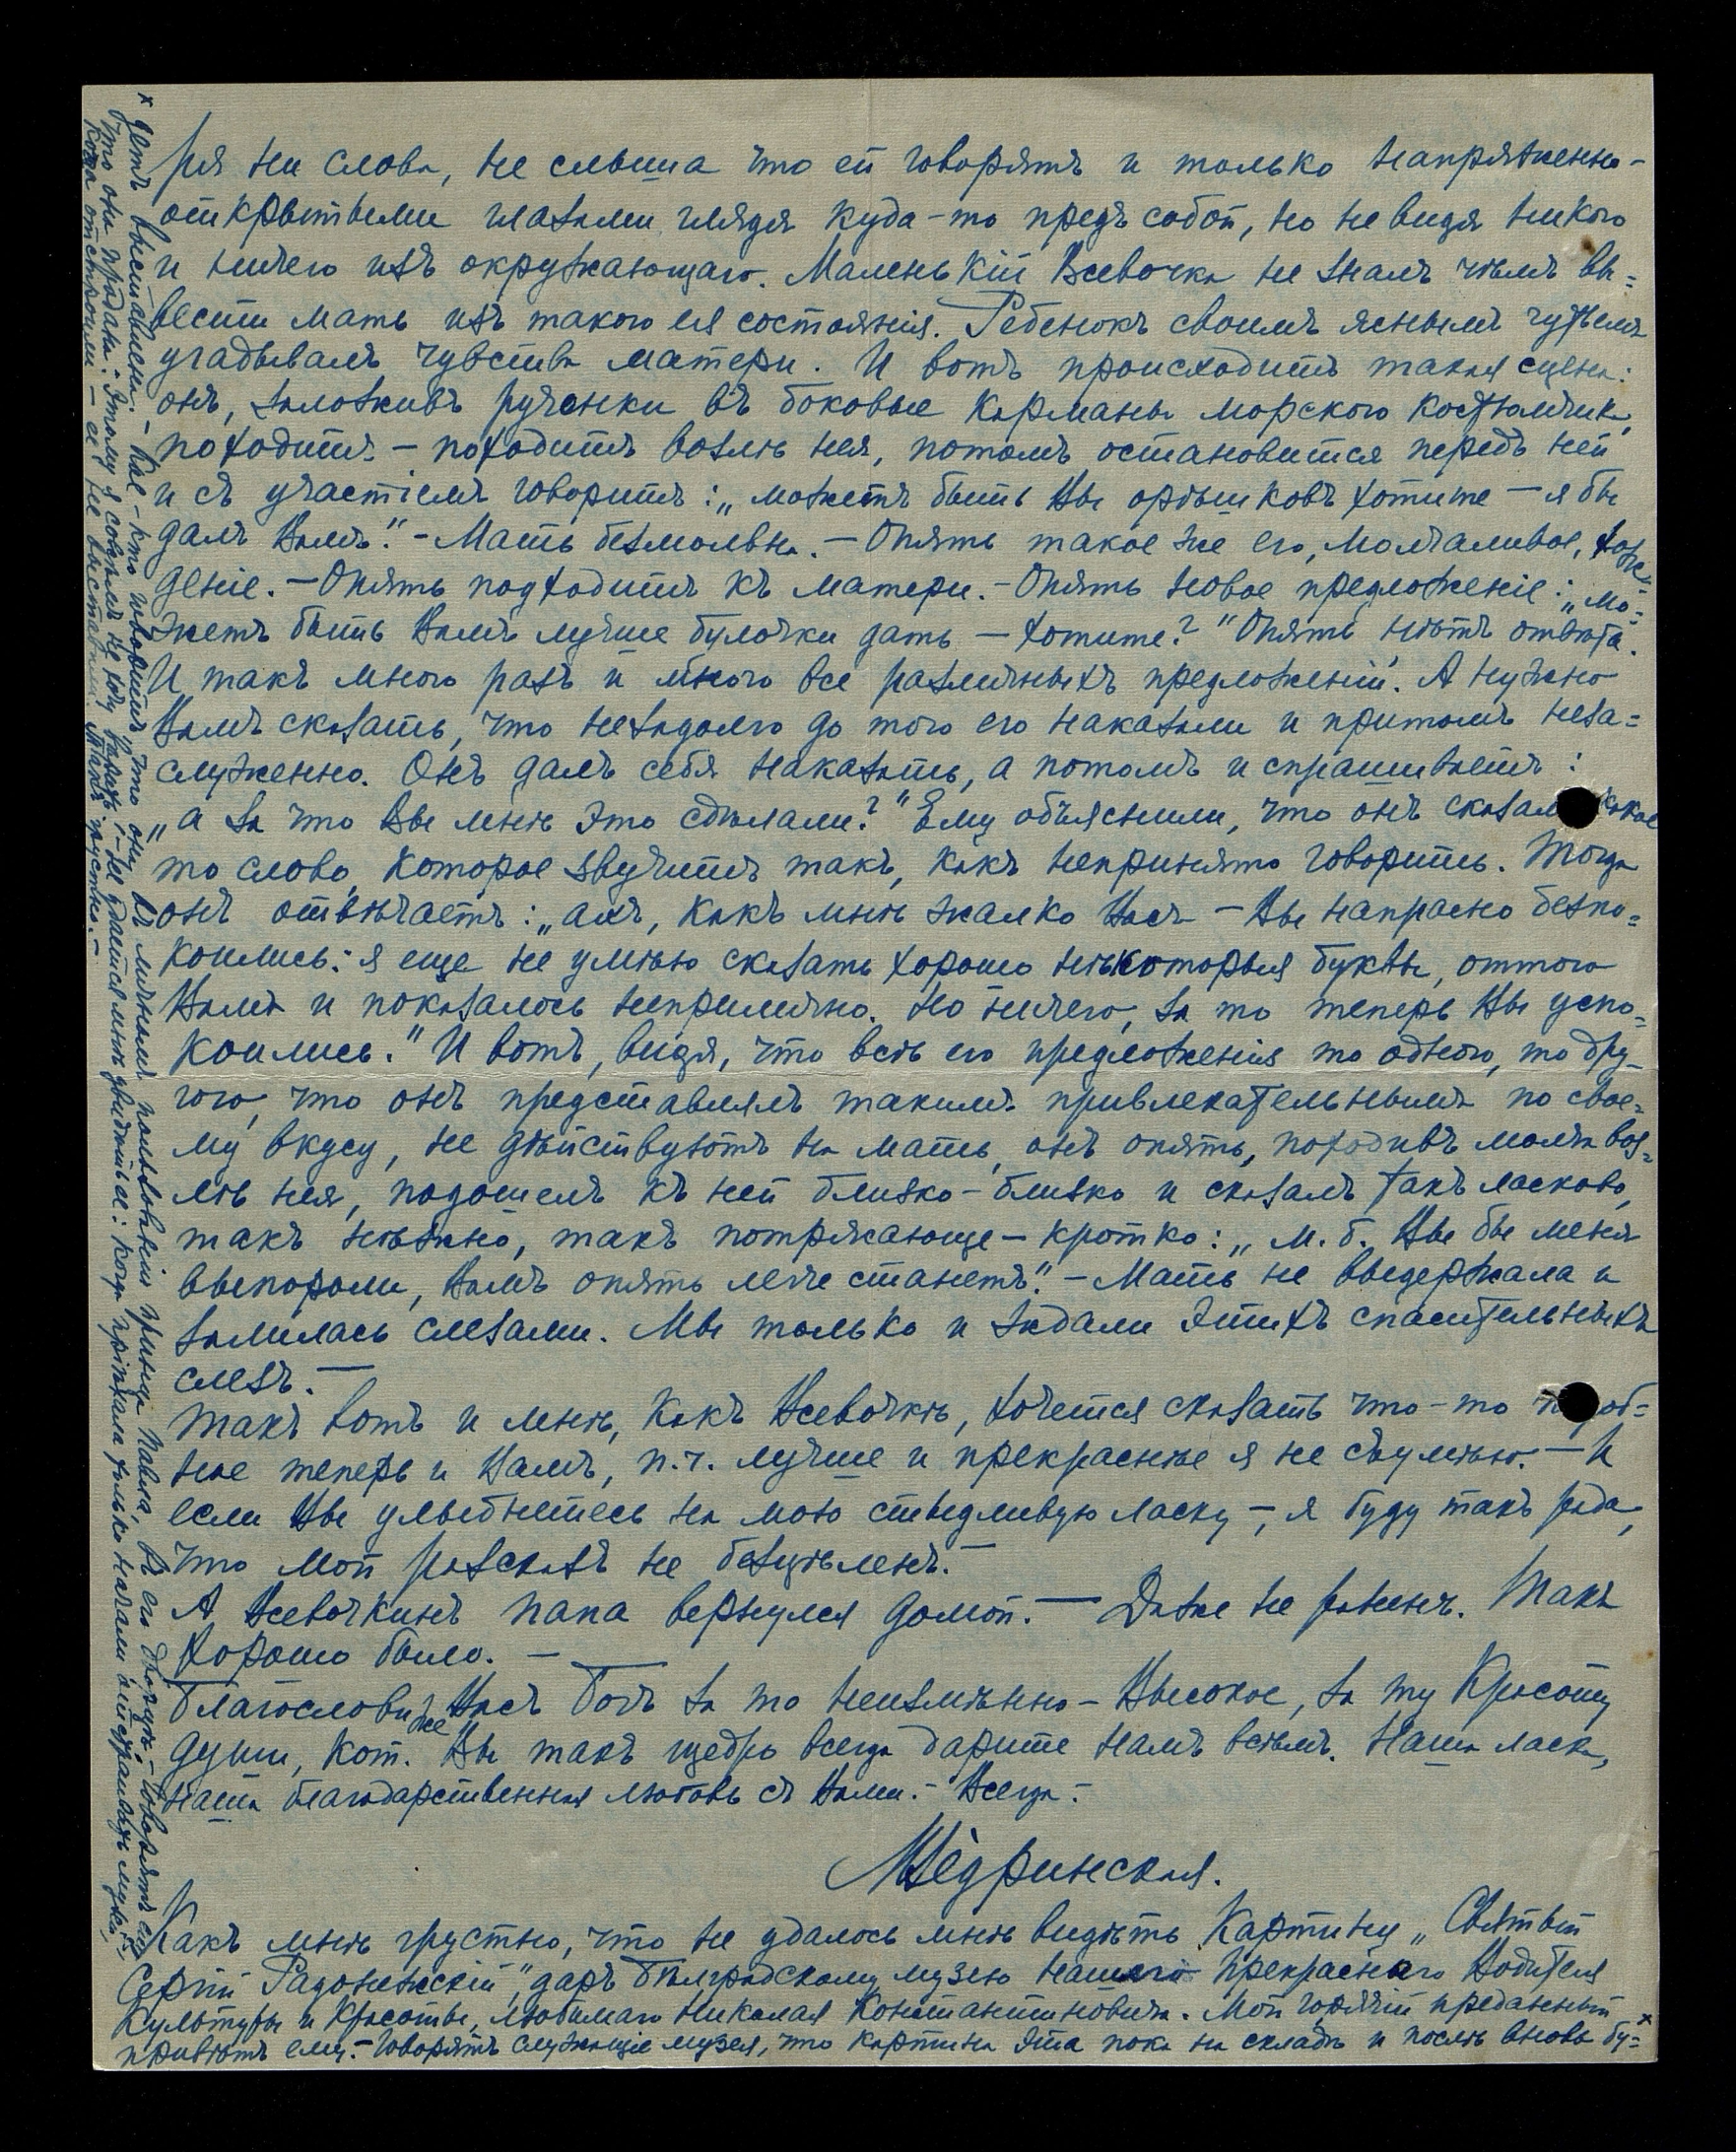 ря ни слова, не слыша что ей говорятъ и только напряженно-
открытыми глазами глядя куда-то предъ собой, но не видя никого
и ничего изъ окружающаго. Маленькій Всевочка не зналъ чѣмъ вы=
вести мать изъ такого ея состоянія. Ребенокъ своимъ яснымъ чутьемъ
угадывалъ чувства матери. И вотъ происходитъ такая сцена:
онъ, заложивъ рученки въ боковые карманы морского костюмчика,
походитъ – походитъ возлѣ нея, потомъ остановится передъ ней
и съ участіемъ говоритъ: „можетъ быть Вы орѣшковъ хотите – я бы
далъ Вамъ." – Мать безмолвна. – Опять такое же его, молчаливое, хож=
деніе. – Опять подходитъ къ матери. – Опять новое предложеніе: „мо=
жетъ быть Вамъ лучше булочки дать – хотите?" Опять нѣтъ отвѣта.
И такъ много разъ и много все различныхъ предложеній. А нужно
Вамъ сказать, что незадолго до того его наказали и притомъ неза=
служенно. Онъ далъ себя наказать, а потомъ и спрашиваетъ:
„а за что Вы мнѣ это сдѣлали?" Ему объяснили, что онъ сказалъ какое
то слово, которое звучитъ такъ, какъ непринято говорить. Тогда
онъ отвѣчаетъ: „ахъ, какъ мнѣ жалко Васъ – Вы напрасно безпо=
коились: я еще не умѣю сказать хорошо нѣкоторыя буквы, оттого
Вамъ и показалось неприлично. Но ничего, за то теперь Вы успо=
коились." И вотъ, видя, что всѣ его предложенія то одного, то дру-
гого, что онъ представлялъ такимъ привлекательнымъ по свое=
му вкусу, не дѣйствуютъ на мать, онъ опять, походивъ молча воз=
лѣ нея, подошелъ къ ней близко-близко и сказалъ такъ ласково,
такъ нѣжно, такъ потрясающе-кротко: „м. б. Вы бы меня
выпороли, Вамъ опять легче станетъ." – Мать не выдержала и
залилась слезами. Мы только и ждали этихъ спасительныхъ
слезъ. –
Такъ вотъ и мнѣ, какъ Всевочкѣ, хочется сказать что-то подоб=
ное теперь и Вамъ, п.ч. лучше и прекраснѣе я не съумѣю. – И
если Вы улыбнетесь на мою стыдливую ласку –, я буду такъ рада,
что мой разсказъ не безцѣленъ. –
А Всевочкинъ папа вернулся домой. – Даже не раненъ. Такъ
хорошо было. –
Благослови же Васъ Богъ за то неизмѣнно-Высокое, за ту Красоту
души, кот. Вы такъ щедро всегда дарите намъ всѣмъ. Наша ласка,
наша благодарственная любовь съ Вами. – Всегда. –
Мѣдринская.
Какъ мнѣ грустно, что не удалось мнѣ видѣть картину „Святый
Сергій Радонежскій", даръ Бѣлградскому музею нашего Прекраснаго Водителя
Культуры и Красоты, любимаго Николая Константиновича. Мой горячій преданный
привѣтъ ему. – Говорятъ служащіе музея, что картина эта пока на складѣ и послѣ вновь бу=
х детъ выставлена. – Кое-кто говоритъ что она въ личномъ пользованіи принца Павла, въ его дворцѣ. – Говорятъ еще
что она продана. Этому я совсѣмъ не хочу вѣрить: – Не удается мнѣ увидѣть ее: когда пріѣхала только начали отстраивать музей,
когда отстроили – ее не выставили. Такъ грустно. –